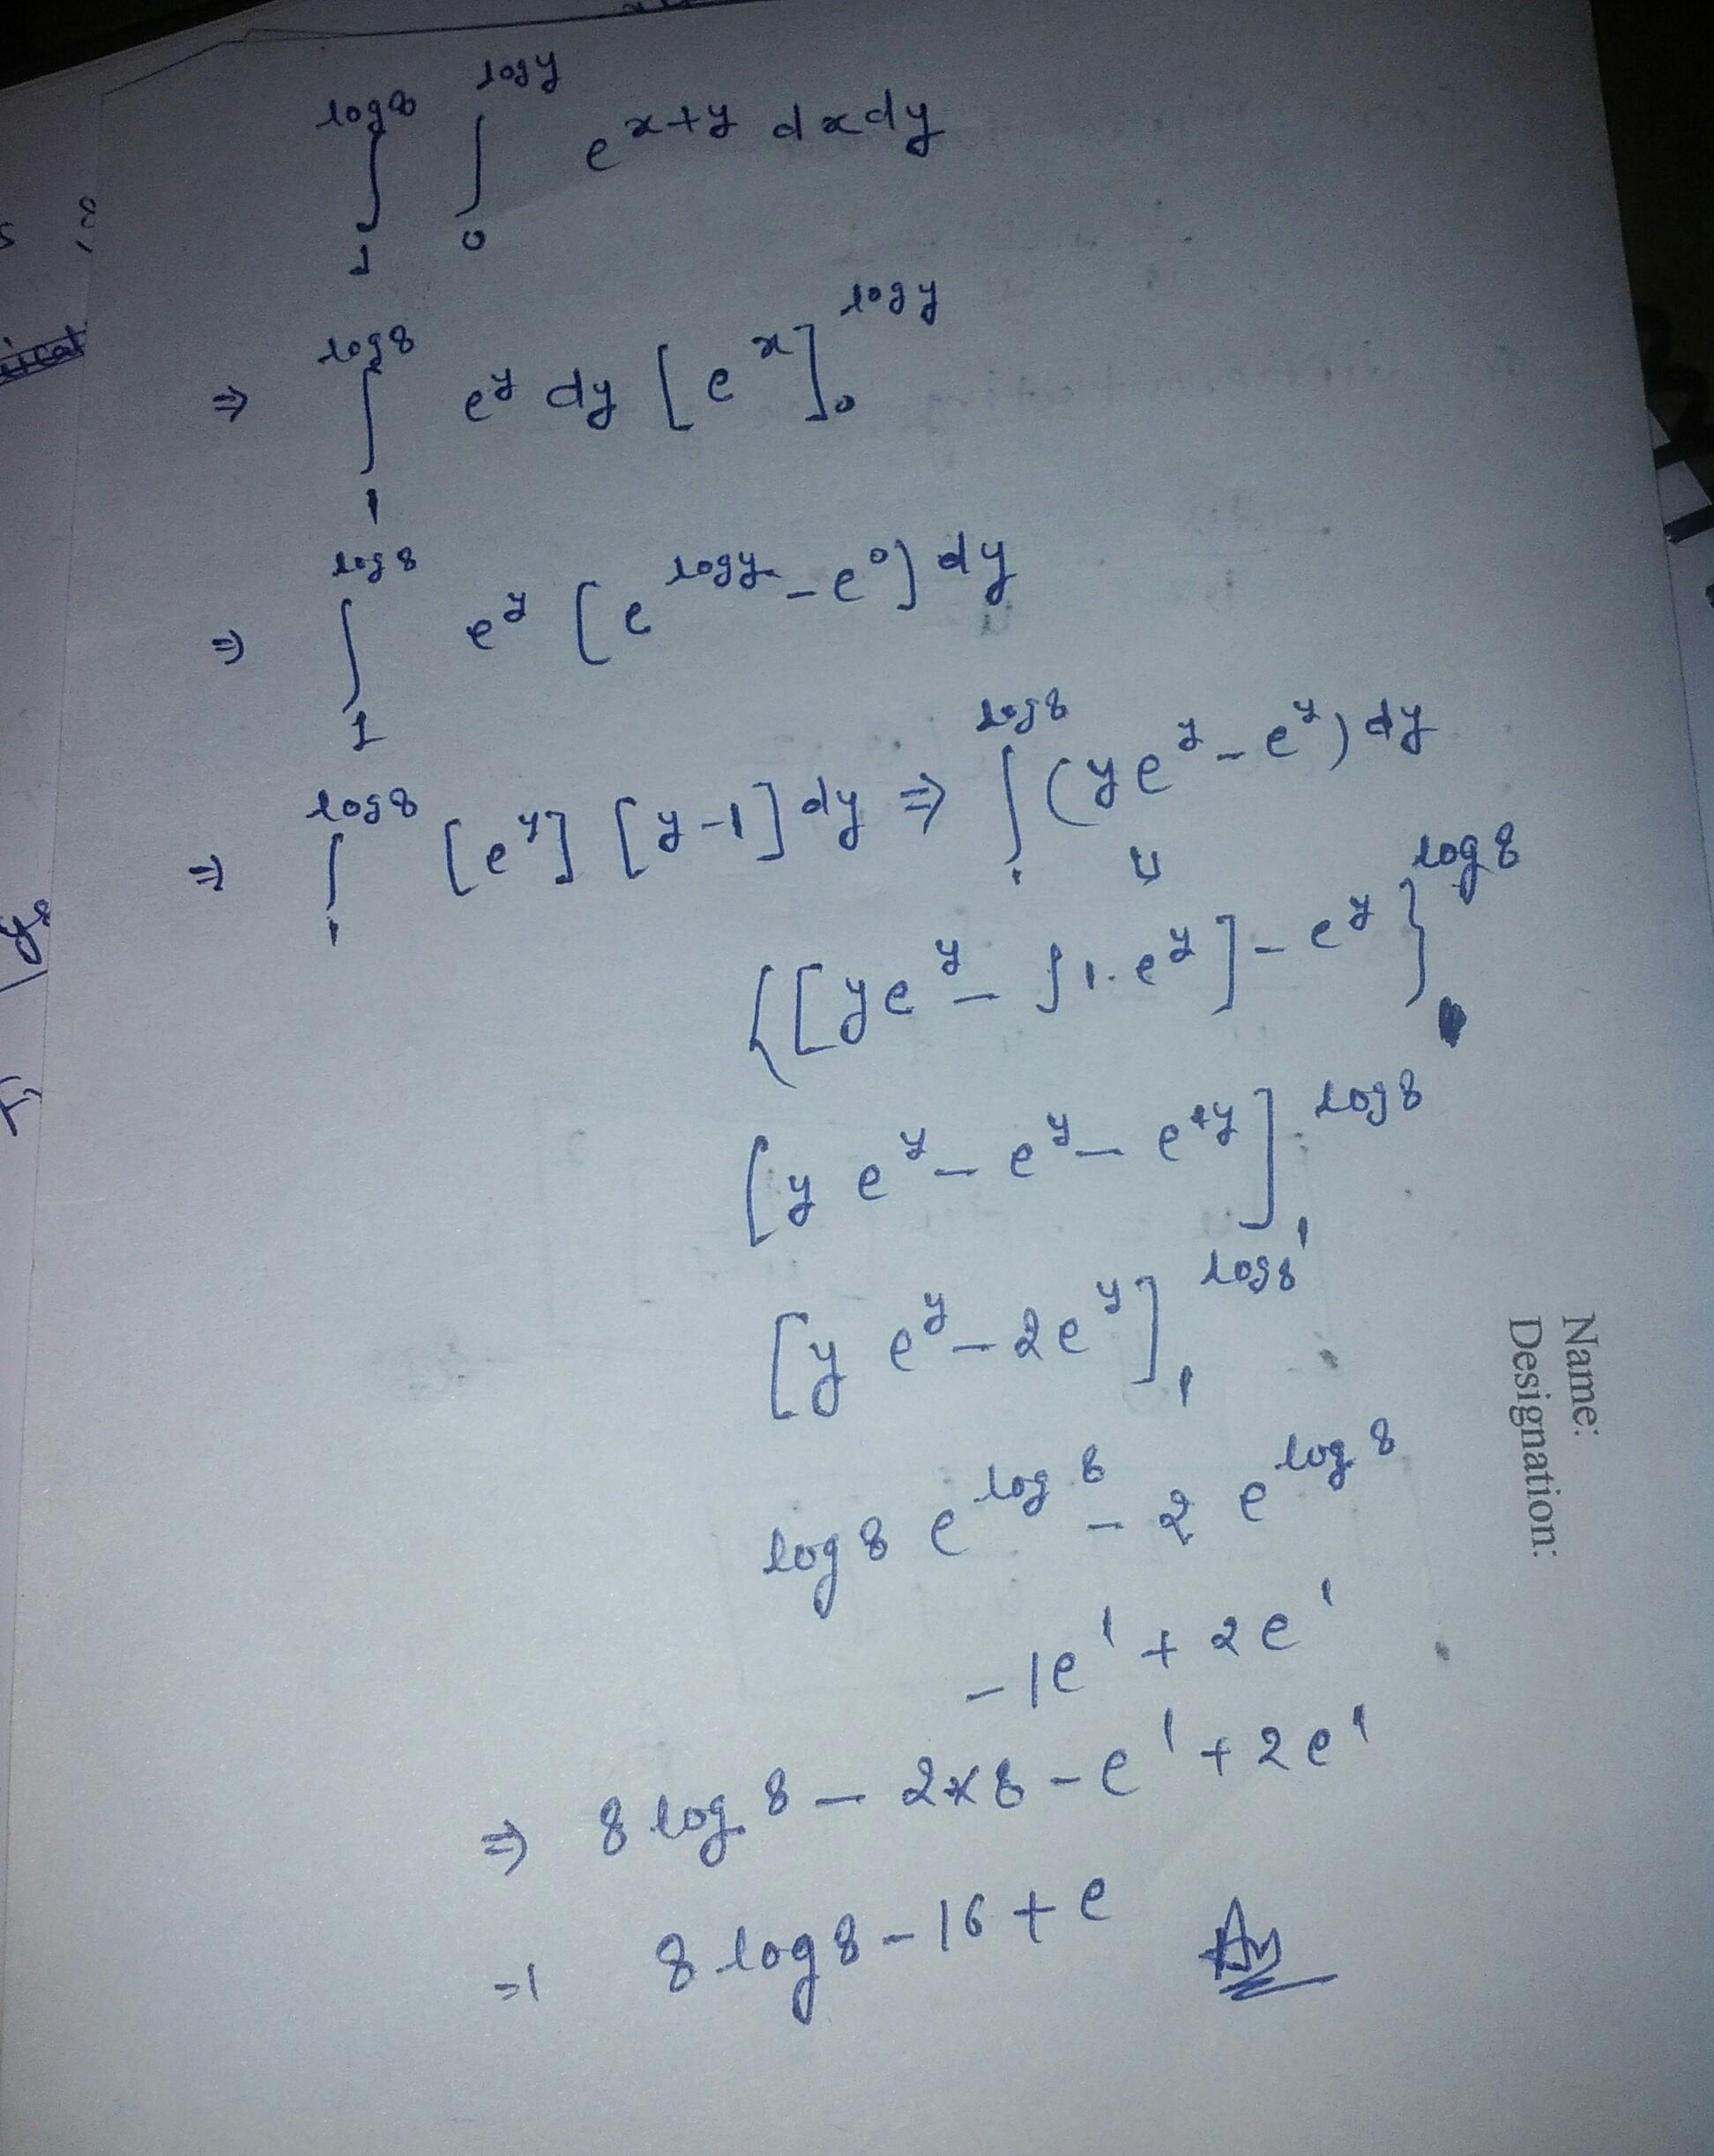 ∫₁^{log8} ∫₀^{logy} e^{x+y} dxdy
⇒ ∫₁^{log8} e^y dy [e^x]₀^{logy}
⇒ ∫₁^{log8} e^y [e^{logy} - e^0] dy
⇒ ∫₁^{log8} [e^y] [y-1] dy ⇒ ∫₁^{log8} (ye^y - e^y) dy
⇓
{[ye^y - ∫1.e^y] - e^y}^{log8}
[y e^y - e^y - e^{+y}]₁^{log8}
[y e^y - 2e^y]₁^{log8}
log8 e^{log8} - 2 e^{log8}
- 1e^1 + 2e^1
⇒ 8 log 8 - 2×8 - e^1 + 2e^1
⇒ 8 log8 - 16 + e Ans
Name:
Designation: